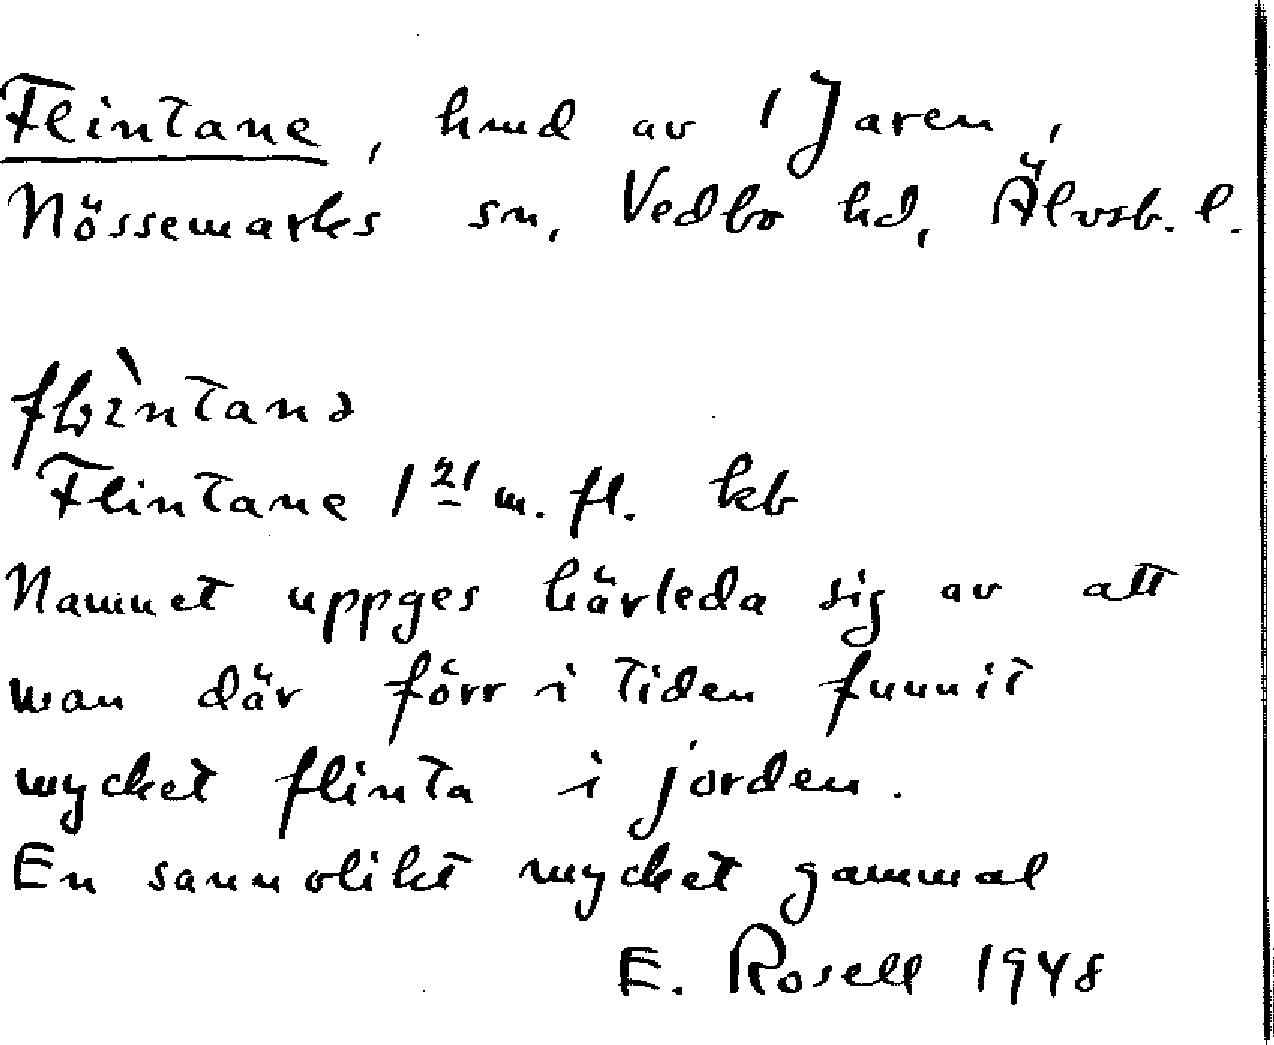 Flintane, hmd av 1 Jaren,
Nössemarks sn, Vedbo hd, Älvsb. l.
Flintane 1 21 m. fl. kb
Namnet uppges härleda sig av att
man där förr i tiden funnit
mycket flinta i jorden.
En sannolikt mycket gammal
E. Rosell 1948